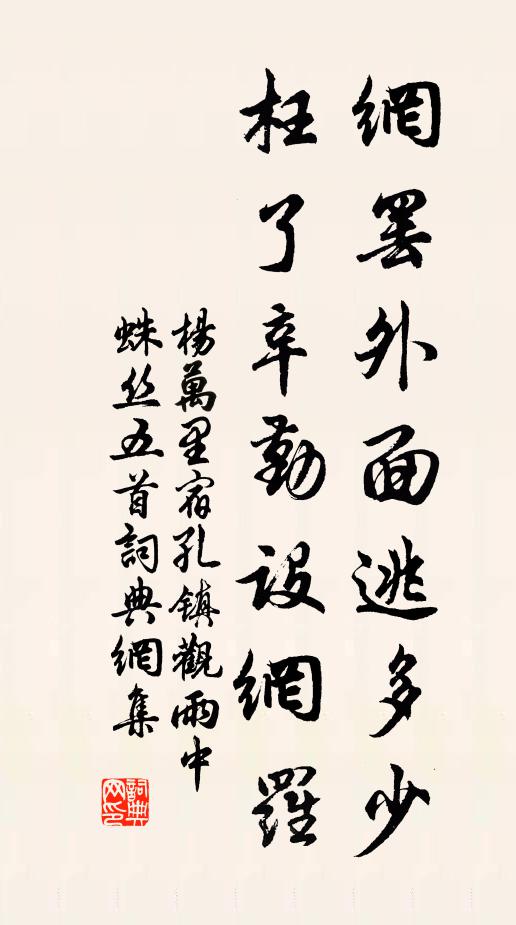 網罷外面逃多少
枉了辛勤設網羅
楊萬里宿孔鎮觀雨中
蛛丝五首詞典網集
詞典网印